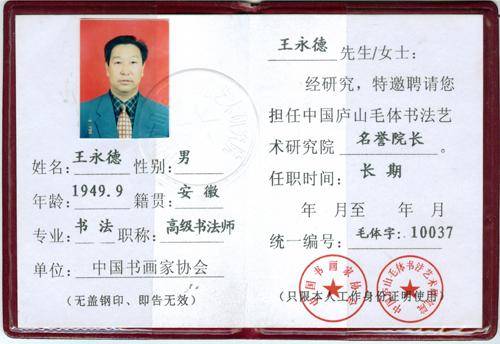 姓名：王永德 性别：男
年龄：1949.9 籍贯：安徽
专业：书法 职称：高级书法师
单位：中国书画家协会
（无盖钢印、即告无效）
王永德 先生/女士：
经研究，特邀聘请您
担任中国庐山毛体书法艺
术研究院 名誉院长 。
任职时间：长期
年 月至 年 月
统一编号：毛体字：10037
中国书画家协会
中国庐山毛体书法艺术研究院
（只限本人工作身份证明使用）